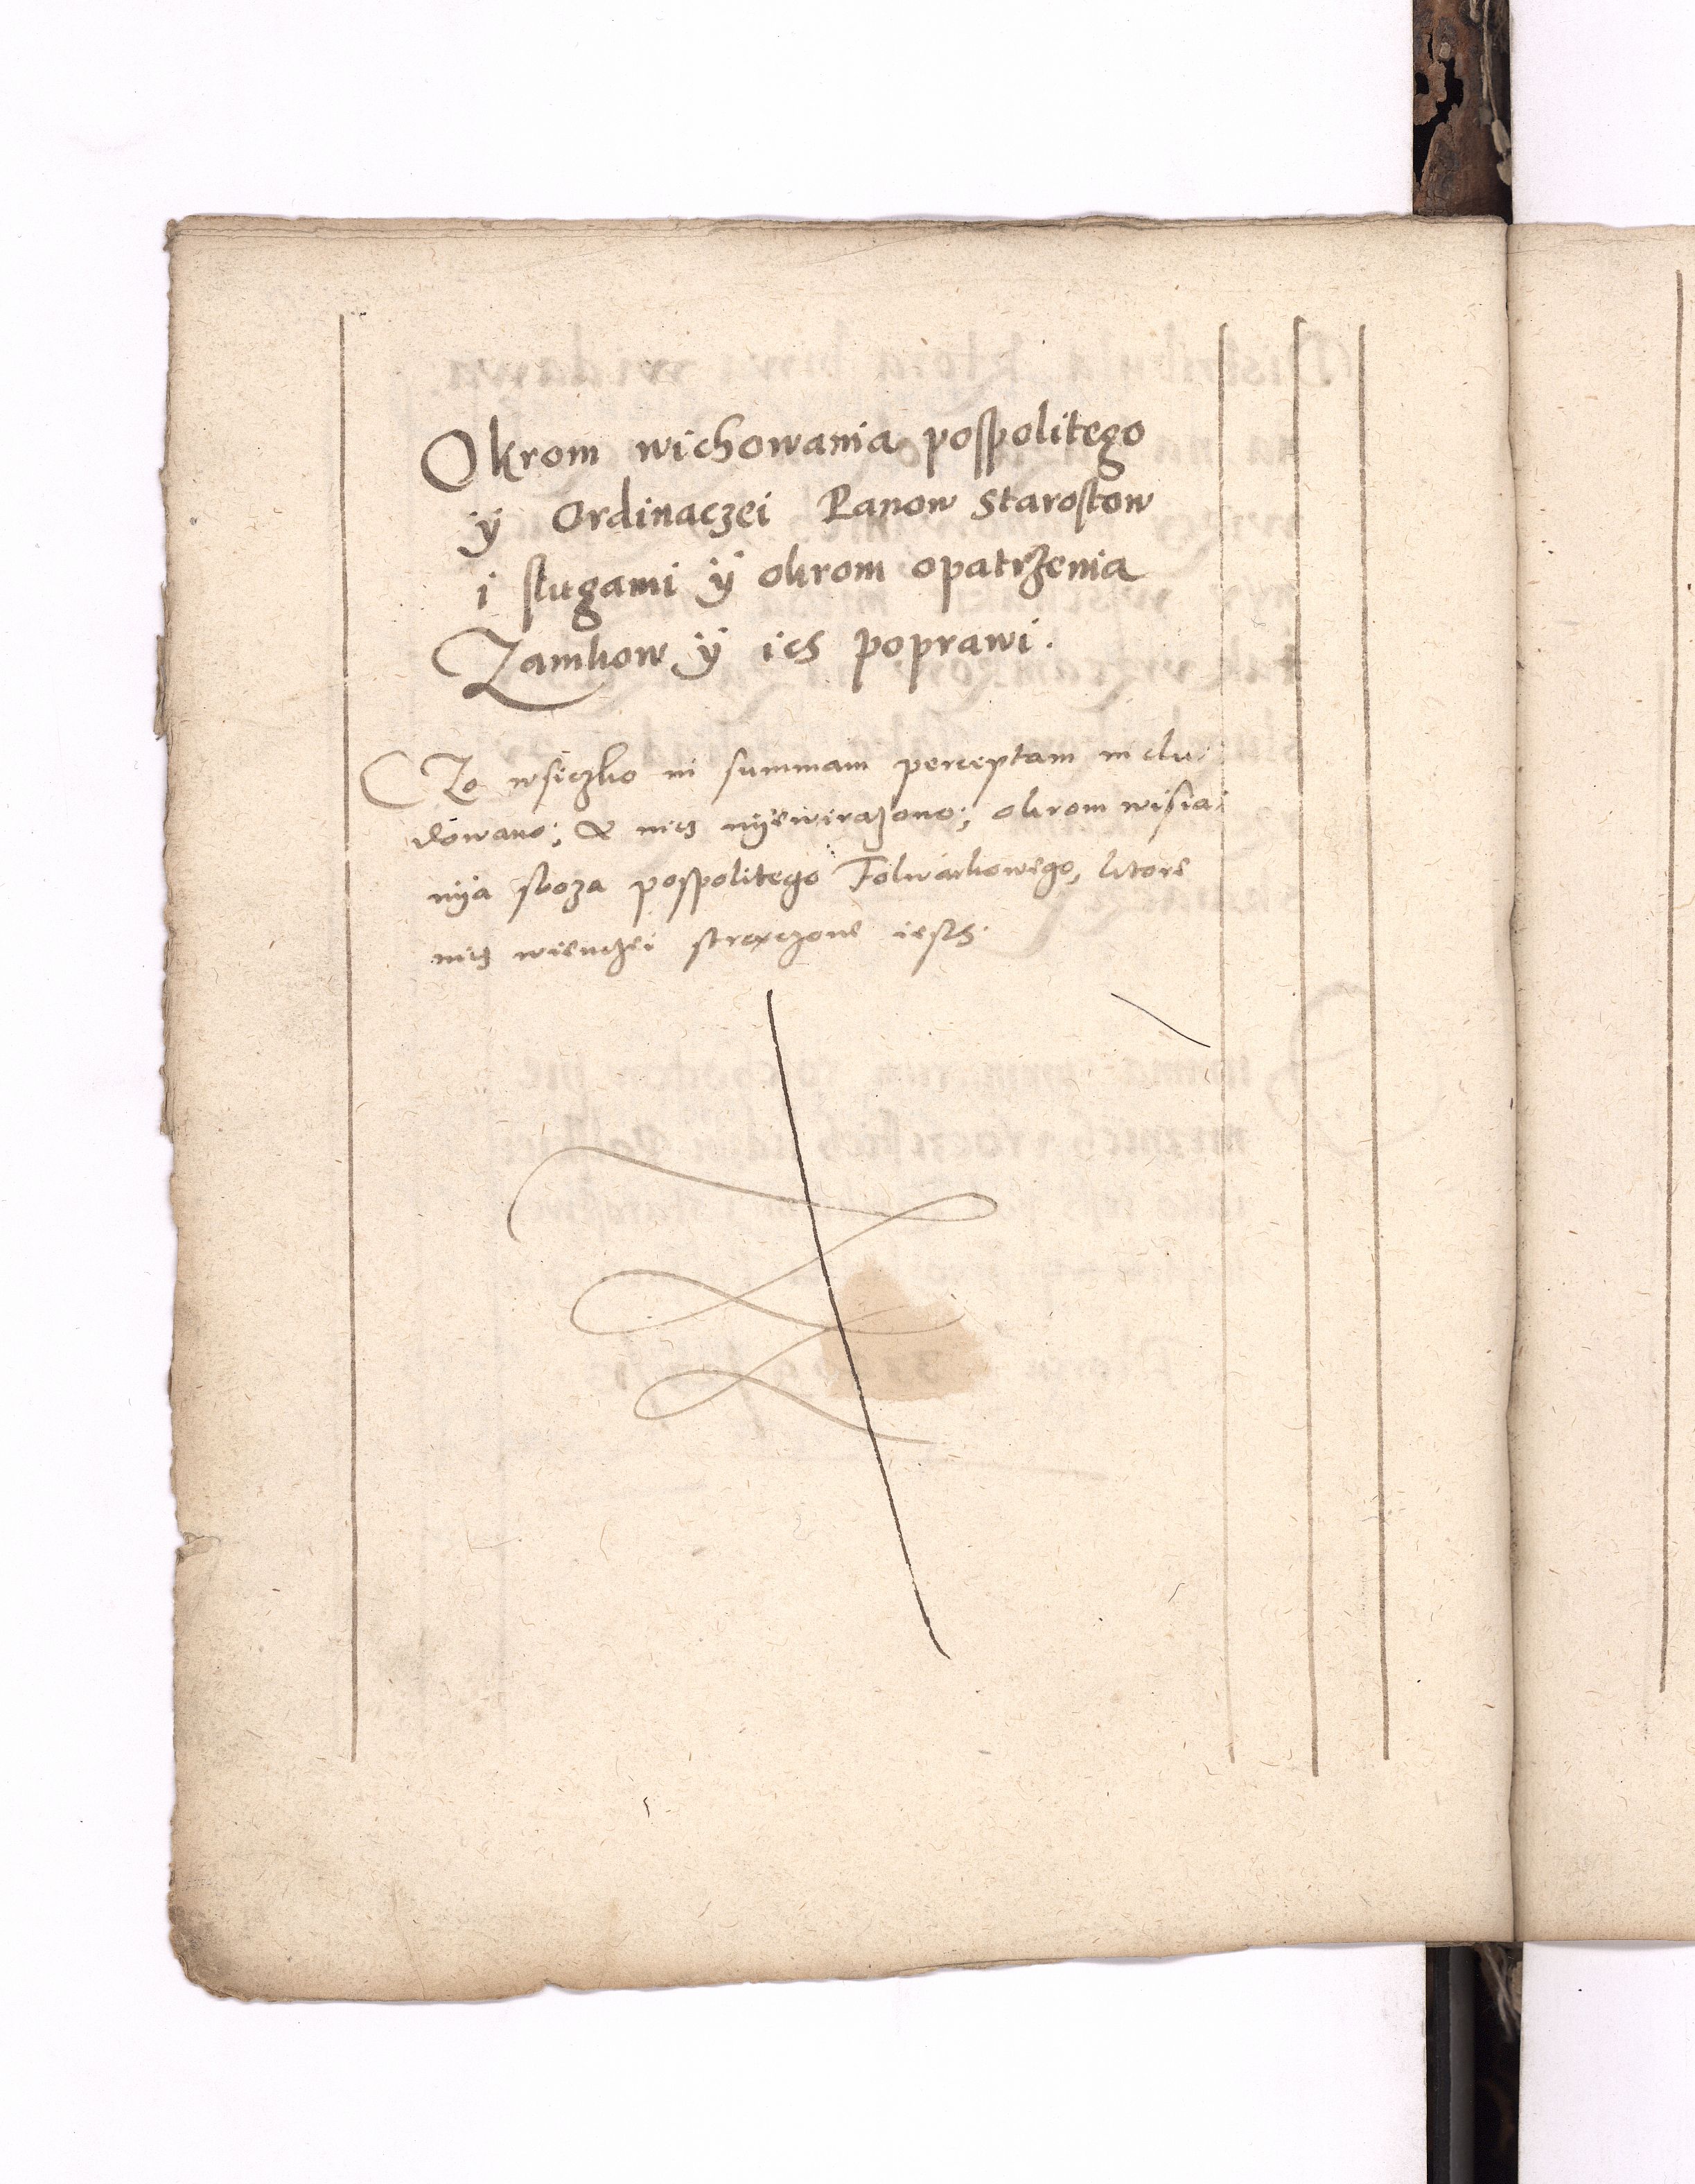 Okrom wichowania pospolitego
ÿ Ordinaczei Panow Starostow
i slugami ÿ okrom opatrzenia
Zamkow ÿ ich poprawi.
To wsiczko in summam perceptam inclu:
dowano; & nics nÿewirazono; okrom wisia:
nÿa sboza pospolitego Folwarkowego, ktore
nics wienczei strczone iesth.